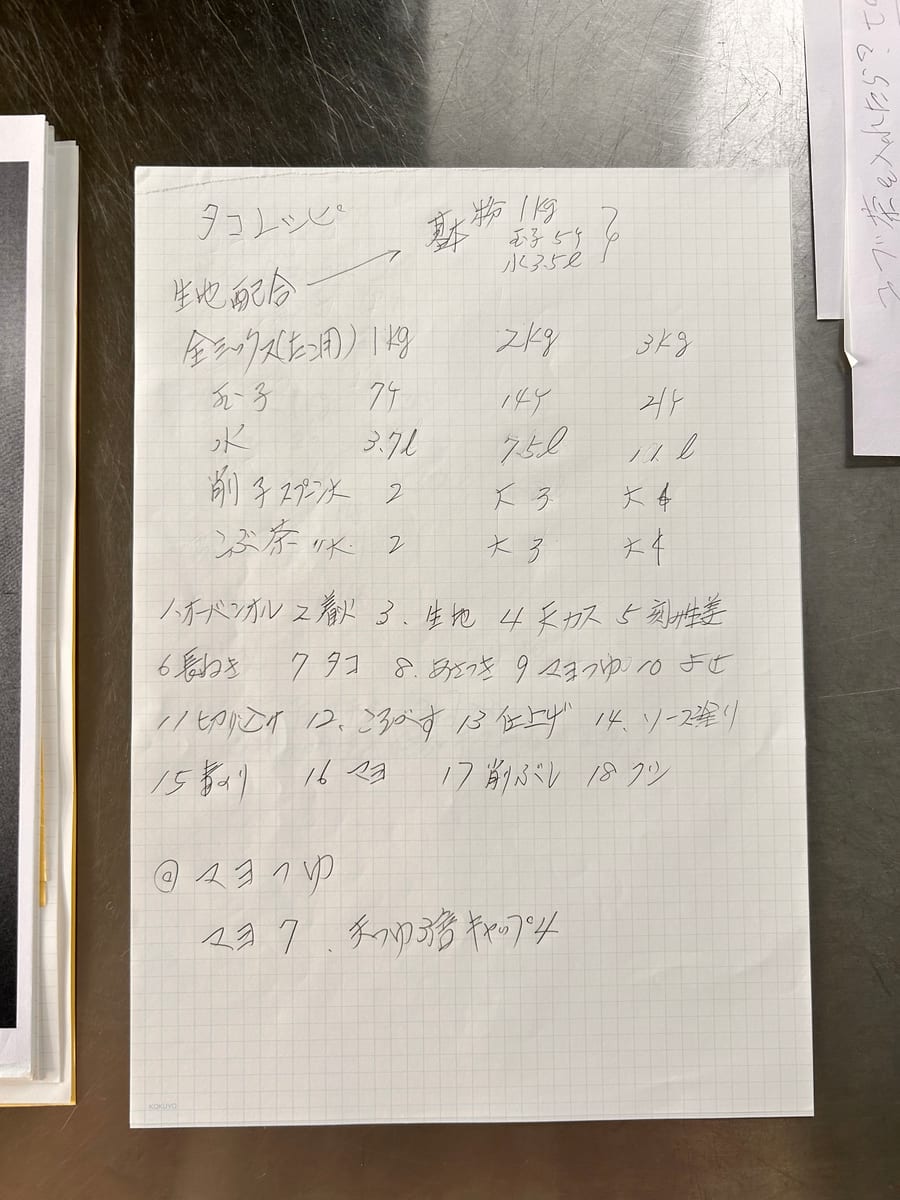 タコレシピ
基本 粉 1kg
玉子 5ケ
水3.5l
生地配合
全ミックス(たこ用) 1kg 2kg 3kg
玉子 7ケ 14ケ 21ケ
水 3.7l 7.5l 11l
削子スプーン大 2 大3 大4
こぶ茶 〃大 2 大3 大4
1、オーブンオル 2 着火 3、生地 4 天カス 5 刻み生姜
6 長ねぎ 7 タコ 8、あさつき 9 マヨつゆ 10 よせ
11 切り込み 12、ころがす 13 仕上げ 14、ソース塗り
15 青のり 16 マヨ 17 削ぶし 18 クシ
◎ マヨつゆ
マヨ 7、天つゆ3倍キャップ4
KOKUYO